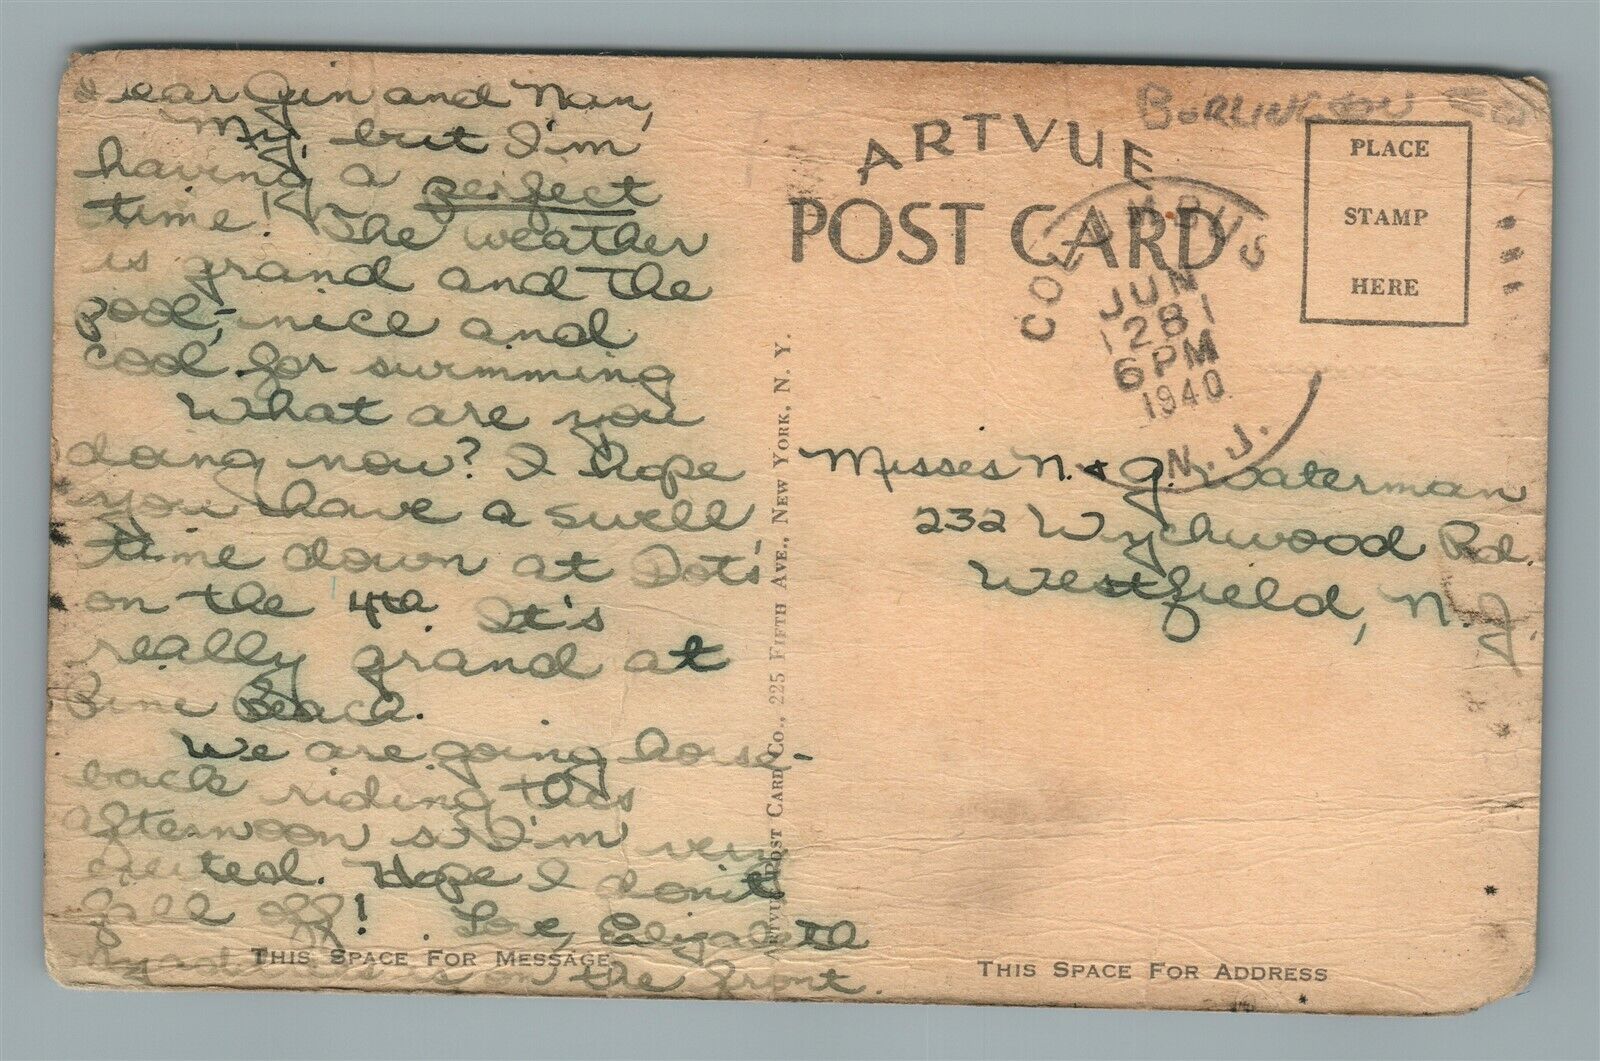 Dear Gin and Nan,
My, but I'm
having a perfect
time! The weather
is grand and the
pool, - nice and
cool for swimming
What are you
doing now? I hope
you have a swell
time down at Dots'
on the 4th. It's
really grand at
Pine Beach.
We are going horse-
back riding this
afternoon so I'm very
excited. Hope I don't
fall off! Love, Elizabeth
My address is on the front.
THIS SPACE FOR MESSAGE
ARTVUE POST CARD CO., 225 FIFTH AVE., NEW YORK, N. Y.
BURLINGTON
ARTVUE
POST CARD
PLACE
STAMP
HERE
COLUMBUS
JUN
28
6 PM
1940
N. J.
Misses N. & G. Waterman
232 Wychwood Rd.
Westfield, N. J.
THIS SPACE FOR ADDRESS